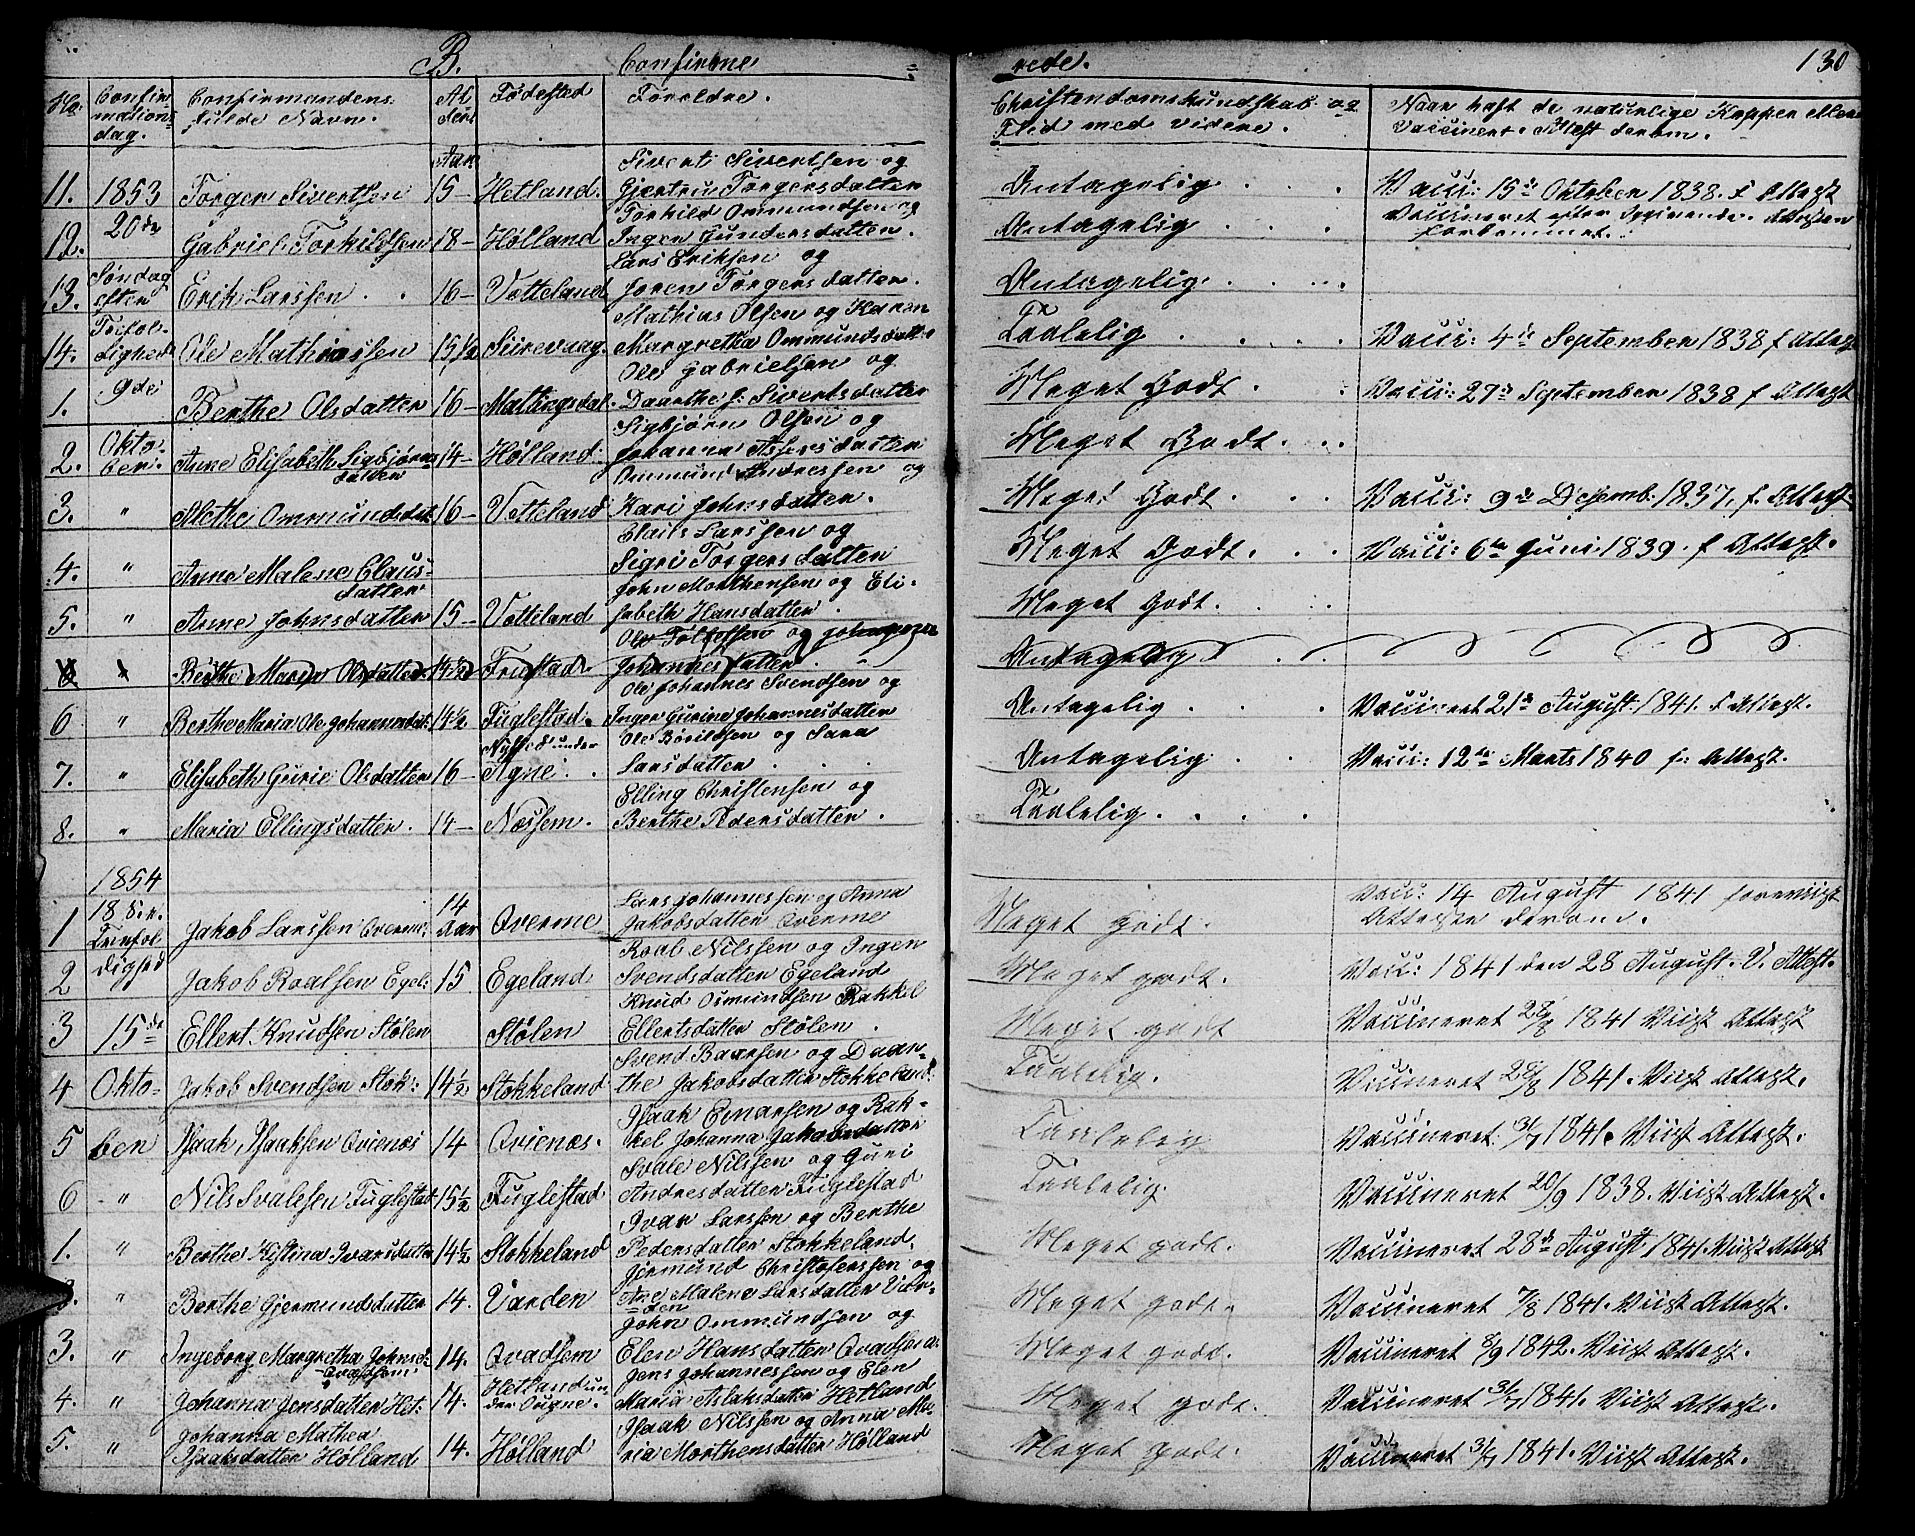 B. Confirme = rede. 130
No. Confir mations dag. Confirmandens fulde Navn. Al der. Fødested Foreldre. Christendomskundskab og Flid med videre. Naar haft de naturlige Kopper eller Vaccineret. Attest derom.
Aar
11. 1853 Torger Sivertsen 15 - Hetland. Sivert Sivertsen og Gjertru Torgersdatter Antagelig . . . Vacci: 15de Oktober 1838. f Attest
12. 20de Gabriel Torkildsen 18 - Hølland Torkild Ommundsen og Inger Gundersdatter. Antagelig . . . Vaccineret efter Opgivende. Attesten forkommet.
13. Søndag efter Erik Larssen . . 16 - Votteland Lars Eriksen og Joren Torgersdatter. Antagelig . . . .
14. Trefol- dighed Ole Mathiassen 15 1/2 Sirevaag. Mathias Olsen og Karen Margretha Ommundsdatter Taalelig . . . . Vacci: 4de September 1838 f Attest
1. 9de Berthe Olsdatter 16 - Mattingsdal. Ole Gabrielsen og Daarthe S. Sivertsdatter Meget Godt . . Vacci: 27de September 1838 f Attest
2. Okto- ber. Anne Elisabeth Sigbjørns datter 14 - Hølland. Sigbjørn Olsen og Johanna Assersdatter Meget Godt . . .
3. " Alethe Ommundsdat: 16 - Votteland Ommund Andressen og Kari Johnsdatter. Meget Godt . . . Vacci: 9de Desemb. 1837. f. Attest.
4. " Anne Malene Claus- datter Claus Larssen og Sigri Torgersdatter Meget Godt . . . Vacci: 6te Juni 1839. f Attest.
5. " Anne Johnsdatter 15 - Votteland John Morthensen og Eli- sabeth Hansdatter . Meget Godt. . .
6 " Berthe Maria Olsdatter 14 1/2 Fuglestad. Ole og Johannesdatter . Antagelig . .
6 " Berthe Maria Ole Johannesdat: 14 1/2 Fuglestad. Ole Johannes Svendsen og Inger Gurine Johannesdatter Antagelig . . . Vaccineret 21de August 1841. f Attest.
7. " Elisabeth Gurie Olsdatter 16 - under Ogne . . Ole Børildsen og Sara Larsdatter . . . Antagelig . . Vacci: 12te Marts 1840 f: Attest.
8. " Maria Ellingsdatter . 14 - Næssem. Elling Christensen og Berthe Pedersdatter . Taalelig. . . .
1854
1 18 S. e. Trefol Jakob Larssen Qverme: 14 Aar Qverme Lars Johannessen og Anna Jakobsdatter Qverme Meget godt. Vacc: 14 August 1841 foreviist Attesten derom.
2 dighed Jakob Roalsen Egel: 15 Egeland Roal Nilssen og Inger Svendsdatter Egeland Meget godt. Vacc: 1841 den 28 August. V. Attest.
3 15de Ellert Knudsen Stølen Stølen Knud Osmundsen Rakkel Ellertsdatter Stølen . Meget godt Vaccineret 28/8 1841 Viist Attest
4 Okto- Jakob Svendsen Stok: 14 1/2 Stokkeland Svend Baarsen og Daar- the Jakobsdatter Stokkeland: Taalelig. Vaccineret 28/8 1841. Viist Attest.
5 ber Isaak Isaaksen Qvienæs 14 Qvienæs. Isaak Einarsen og Rak- kel Johanna Jakobsdatter Taalelig Vaccineret 31/7 1841. Viist Attest.
6 " Nils Svalesen Fuglestad 15 1/2 Fuglestad Svale Nilssen og Guri Andresdatter Fuglestad Taalelig. Vaccineret 20/9 1838. Viist Attest.
1. " Berthe Kistina Ivarsdatter 14 1/2 Stokkeland Ivar Larssen og Berthe Pedersdatter Stokkeland. Meget godt. Vaccineret 28de August 1841. Viist Attest
2. " Berthe Gjermundsdatter 14. Varden Gjermund Christofersen og Ane Malene Larsdatter Var- den Meget godt. Vaccineret 7/8 1841. Viist Attest.
3. " Ingeborg Margretha Johnsd: Qvadsem: 14. Qvadsem John Ommundsen og Elen Hansdatter Qvadsem Meget godt. Vaccineret 8/9 1842. Viist Attest.
4. " Johanna Jensdatter Het: 14. Hetland un- der Ougne. Jens Johannessen og Elen Maria Aslaksdatter Hetland Meget godt. Vaccineret 31/7 1841. Viist Attest.
5. " Johanna Mathea Isaksdatter Hølland 14. Hølland Isaak Nilssen og Anna Ma- ria Morthensdatter Hølland Meget godt. Vaccineret 31/7 1841. Viist Attest.